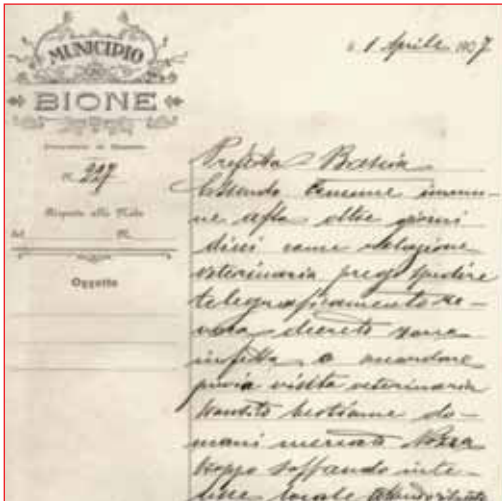 MUNICIPIO
BIONE
N. 227
Risposta alla Nota
del N.
Oggetto
1 Aprile 1907
Prefetto Brescia
Essendo Comune immu-
ne afta oltre giorni
dieci come relazione
veterinaria prego spedire
telegraficamente re-
voca decreto zona
infetta e mandare
previa visita veterinaria
bestiame do-
mani mercato Nozza
troppo soffrendo inte-
resse locale